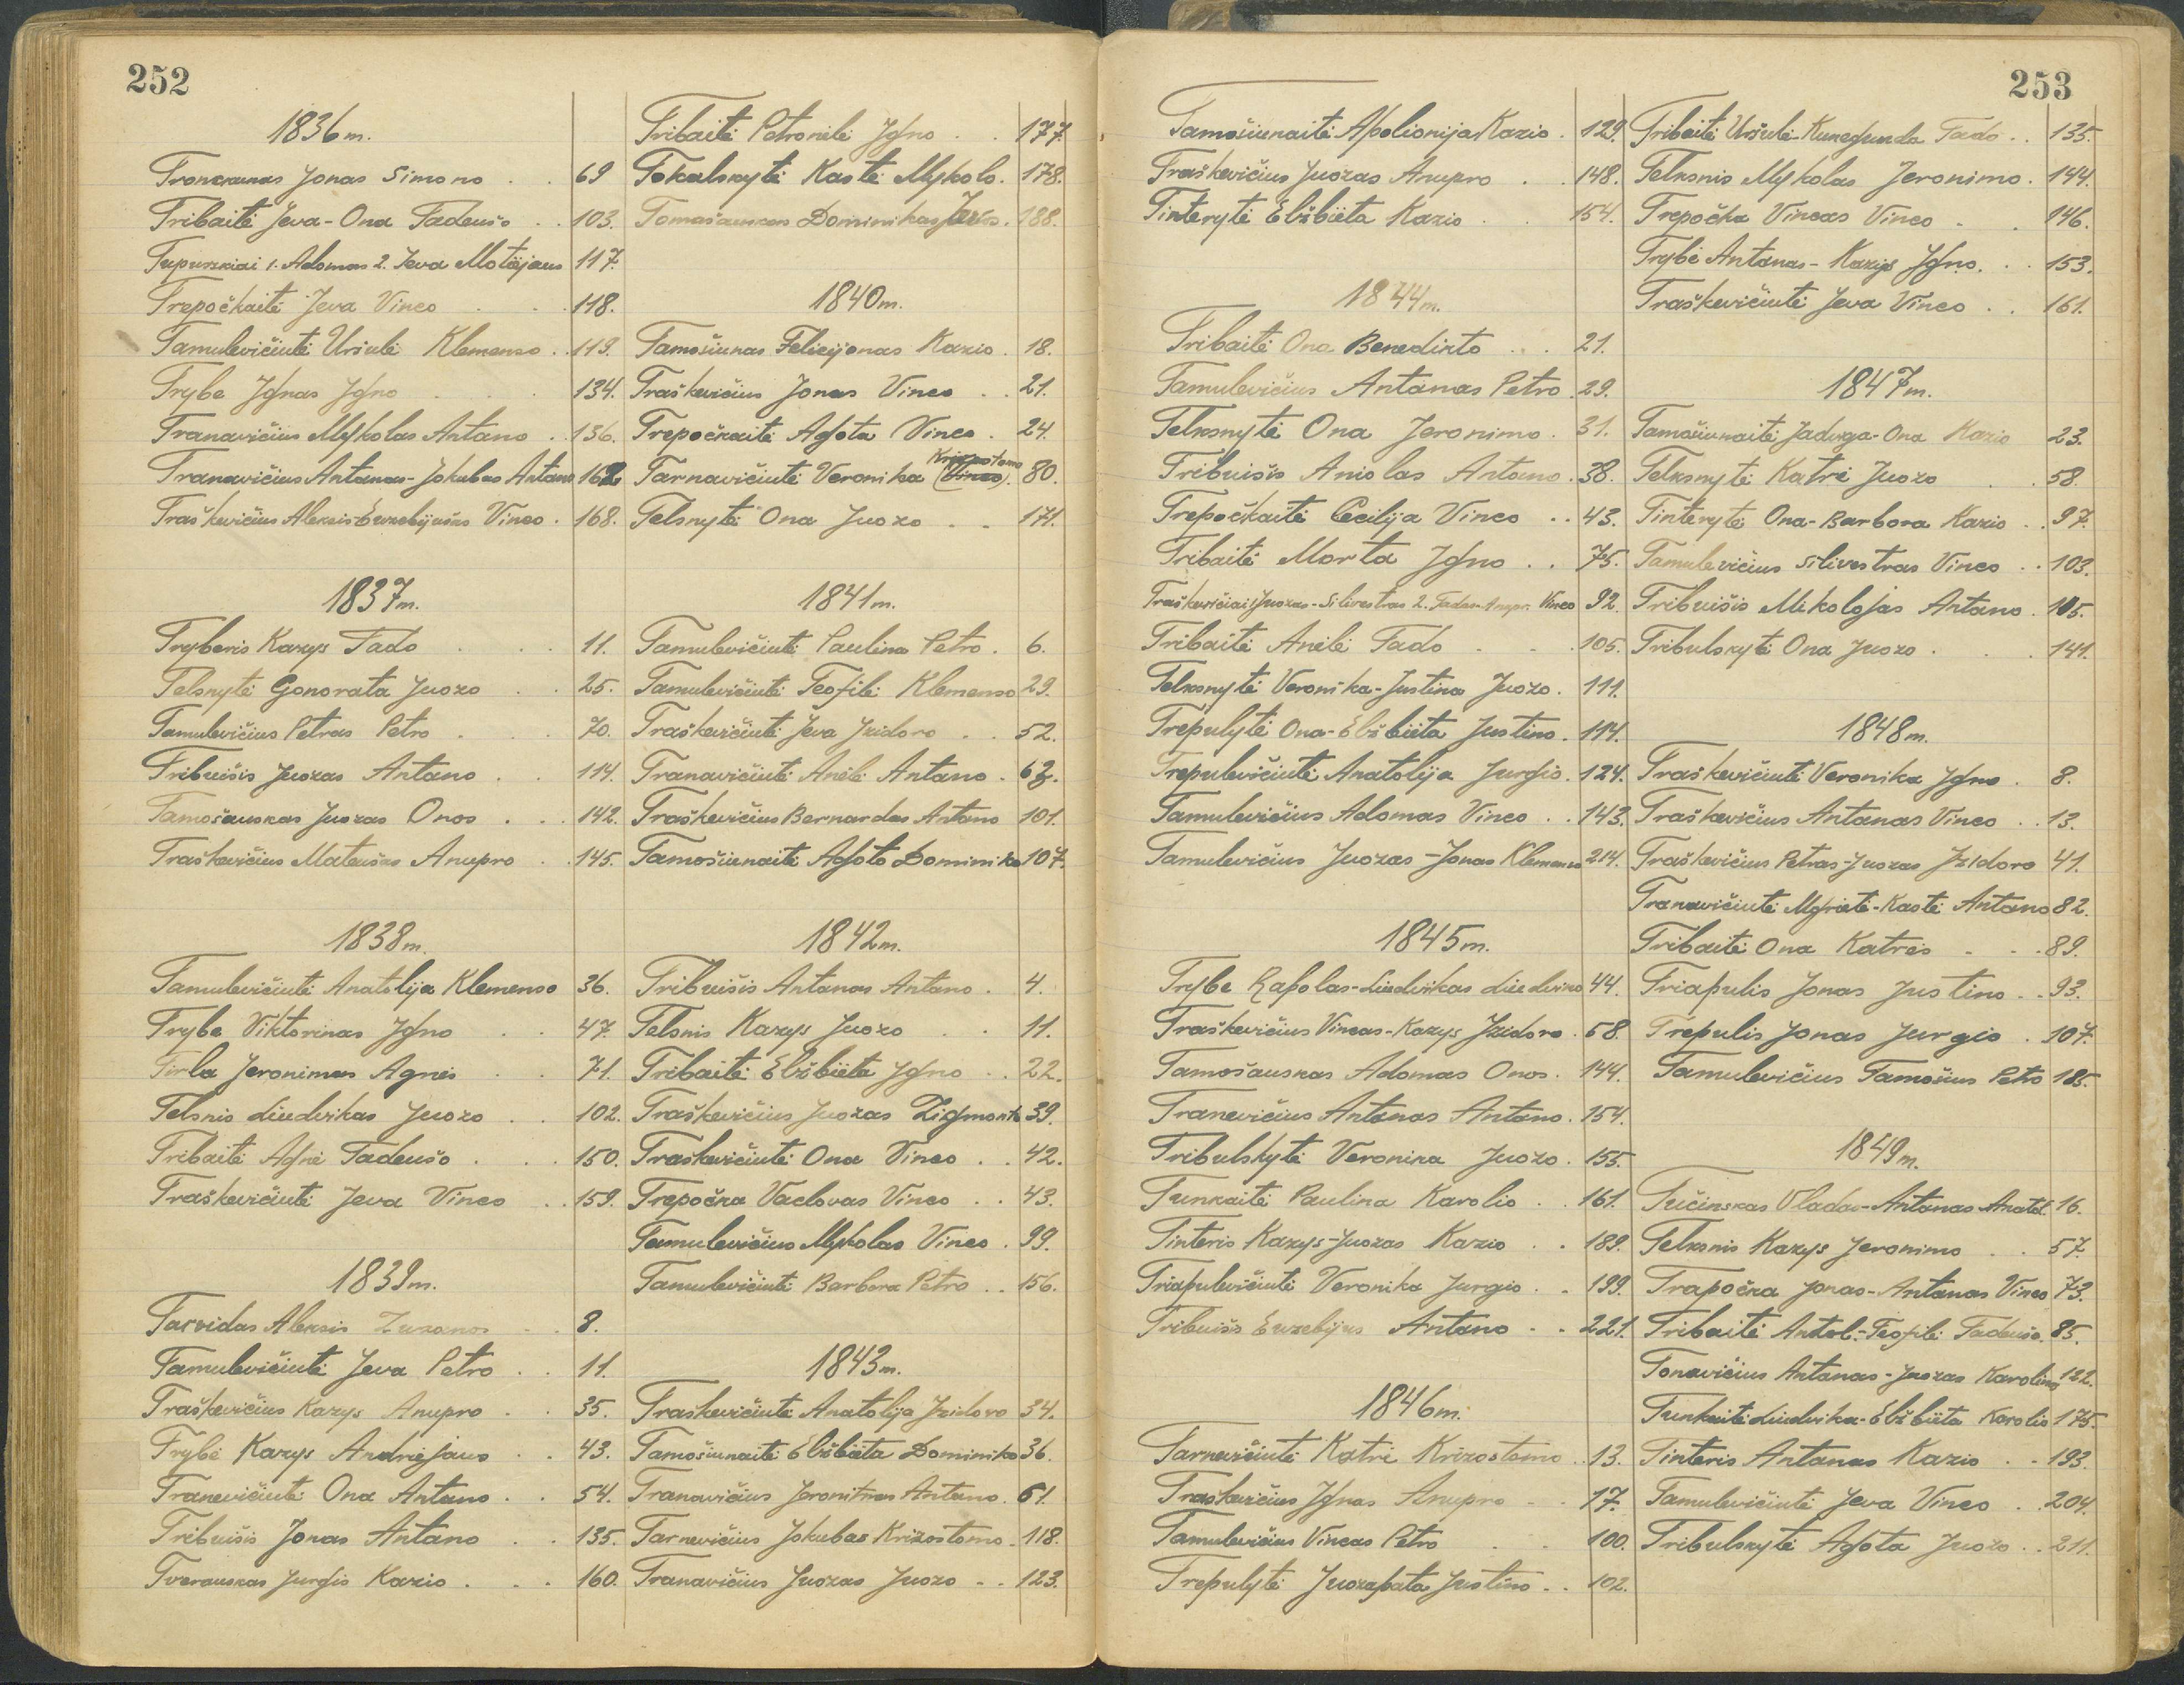 252
1836 m.
Tronckunas Jonas Simono . . 69
Tribaitė Jeva-Ona Tadeušo . . 103.
Tupurskiai 1. Adomas 2. Jeva Motiejaus 117.
Trepočkaitė Jeva Vinco . . 118.
Tamulevičiutė Uršulė Klemenso . 119.
Trybe Jgnas Jgno . . . 134.
Tranavičius Mykolas Antano . 136.
Tranavičius Antanas-Jokubas Antano 162.
Traškevičius Aleksis-Euzebijušas Vinco . 168.
1837 m.
Tryberis Kazys Tado . . . 11.
Telsnytė Gonorata Juozo . . 25.
Tamulevičius Petras Petro . . . 70.
Tribuišis Juozas Antano . . 114.
Tamošauskas Juozas Onos . . . 142.
Traškevičius Mateušas Anupro . . 145.
1838 m.
Tamulevičiutė Anatolija Klemenso 36.
Trybe Viktorinas Jgno . . 47.
Tirla Jeronimas Agnės . . 71.
Telsnis Liudvikas Juozo . . 102.
Tribaitė Agnė Tadeušo . . . 150.
Traškevičiutė Jeva Vinco . . 159.
1839 m.
Tarvidas Aleksis Zuzanos . . 8.
Tamulevičiutė Jeva Petro . . 11.
Traškevičius Kazys Anupro . . 35.
Trybė Kazys Andriejaus . . 43.
Tranevičiutė Ona Antano . . 54.
Tribuišis Jonas Antano . . 135.
Tverauskas Jurgis Kazio . . . 160.
Tribaitė Petronėlė Jgno . . 177.
Tokalskytė Kastė Mykolo . 178.
Tomašauskas Dominikas . 188.
1840 m.
Tamošiunas Felicijonas Kazio . 18.
Traškevičius Jonas Vinco . . 21.
Trepočkaitė Agota Vinco . 24.
Krizostomo
Tarnavičiutė Veronika (Vinco). 80.
Telsnytė Ona Juozo . . 171.
1841 m.
Tamulevičiutė Paulina Petro . 6.
Tamulevičiutė Teofilė Klemenso 29.
Traškevičiutė Jeva Jzidoro . . 52.
Tranavičiutė Anėlė Antano . 62.
Traškevičius Bernardas Antano 101.
Tamošiunaitė Agota Dominiko 107.
1842 m.
Tribuišis Antanas Antano . 4.
Telsnis Kazys Juozo . . 11.
Tribaitė Elžbieta Jgno . . 22.
Traškevičius Juozas Zigmonto 39.
Traškevičiutė Ona Vinco . . 42.
Trepočka Vaclovas Vinco . . 43.
Tamulevičius Mykolas Vinco . 99.
Tamulevičiutė Barbora Petro . . 156.
1843 m.
Traškevičiutė Anatolija Jzidoro 34.
Tamošiunaitė Elžbieta Dominiko 36.
Tranavičius Jeronimas Antano . 61.
Tarnevičius Jokubas Krizostomo . 118.
Tranavičius Juozas Juozo . . 123.
253
Tamošiunaitė Apolionija Kazio . 129.
Traškevičius Juozas Anupro . . 148.
Tinterytė Elžbieta Kazio . . 154.
1844 m.
Tribaitė Ona Benedikto . . . 21.
Tamulevičius Antanas Petro . 29.
Telksnytė Ona Jeronimo . 31.
Tribuišis Aniolas Antano . 38.
Trepočkaitė Cecilija Vinco . . 43.
Tribaitė Morta Jgno . . 75.
Traškevičiai 1. Juozas-Silvestras 2. Tadas-Anupr. Vinco 92.
Tribaitė Anėlė Tado . . . 105.
Telksnytė Veronika-Justina Juozo . 111.
Trepulytė Ona-Elžbieta Justino . 114.
Trepulevičiutė Anatolija Jurgio . 124.
Tamulevičius Adomas Vinco . . 143.
Tamulevičius Juozas-Jonas Klemenso 214.
1845 m.
Trybe Rapolas-Liudvikas Liudviko 44.
Traškevičius Vincas-Kazys Jzidoro . 58.
Tamošauskas Adomas Onos . 144.
Tranevičius Antanas Antano . 154.
Tribulskytė Veronika Juozo . 155.
Tunkaitė Paulina Karolio . . 161.
Tinteris Kazys-Juozas Kazio . . 189.
Triapulevičiutė Veronika Jurgio . . 199.
Tribuišis Euzebijus Antano . . 221.
1846 m.
Tarnavičiutė Katrė Krizostomo . . 13.
Traškevičius Jgnas Anupro . . 17.
Tamulevičius Vincas Petro . . 100.
Trepulytė Juozapata Justino . . 102.
Tribaitė Uršulė-Kunegunda Tado . . 135.
Telksnis Mykolas Jeronimo . 144.
Trepočka Vincas Vinco . . 146.
Trybė Antanas-Kazys Jgno . . . 153.
Traškevičiutė Jeva Vinco . . 161.
1847 m.
Tamošiunaitė Jadvyga-Ona Kazio 23.
Telksnytė Katrė Juozo . . 58.
Tinterytė Ona-Barbora Kazio . . 97.
Tamulevičius Silivestras Vinco . . 103.
Tribuišis Mikolojas Antano . 105.
Tribulskytė Ona Juozo . . . 141.
1848 m.
Traškevičiutė Veronika Jgno . 8.
Traškevičius Antanas Vinco . . 13.
Traškevičius Petras-Juozas Jzidoro 41.
Tranavičiutė Mgrietė-Kastė Antano 82.
Tribaitė Ona Katrės . . . 89.
Triapulis Jonas Justino . . 93.
Trepulis Jonas Jurgio . 107.
Tamulevičius Tamošius Petro 185.
1849 m.
Tučinskas Vladas-Antanas Anatol. 16.
Telksnis Kazys Jeronimo . . 57.
Trapočka Jonas-Antanas Vinco 73.
Tribaitė Antol.-Teofilė Tadeušo . 85.
Tonavičius Antanas-Juozas Karolinos 122.
Tunkaitė Liudvika-Elžbieta Karolio 175.
Tinteris Antanas Kazio . . 193.
Tamulevičiutė Jeva Vinco . . 204.
Tribulskytė Agota Juozo . . 211.